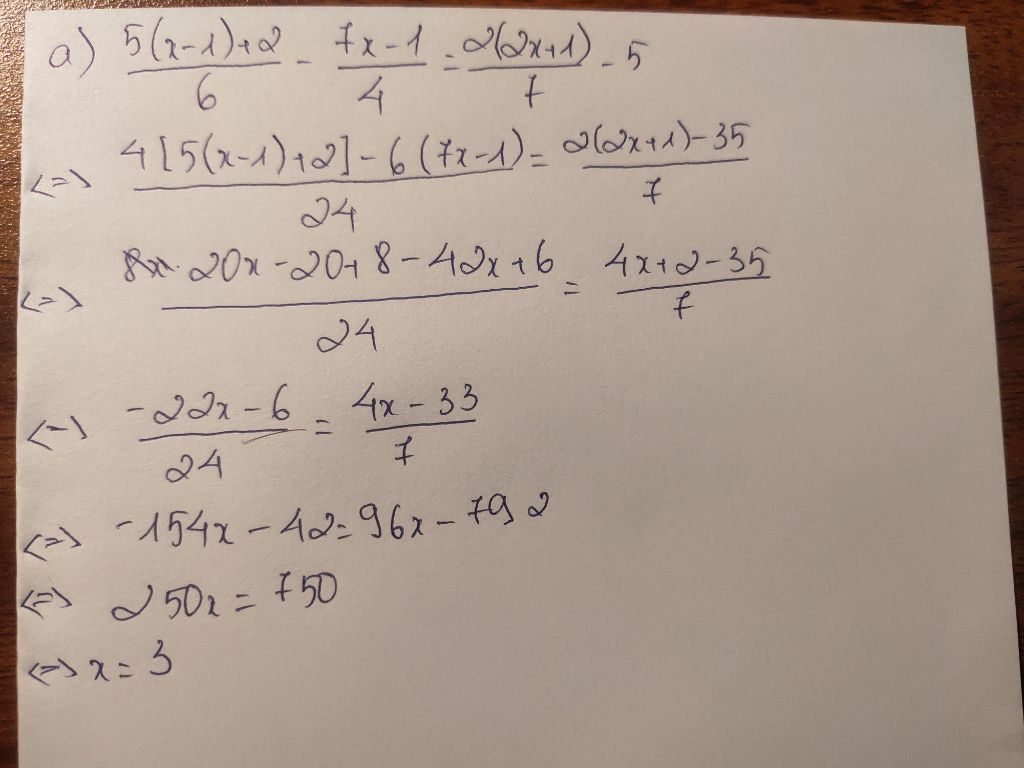 a) (5(x-1)+2)/6 - (7x-1)/4 = (2(2x+1))/7 - 5
<=> (4[5(x-1)+2]-6(7x-1))/24 = (2(2x+1)-35)/7
<=> (20x-20+8-42x+6)/24 = (4x+2-35)/7
<=> (-22x-6)/24 = (4x-33)/7
<=> -154x-42=96x-792
<=> 250x=750
<=> x=3